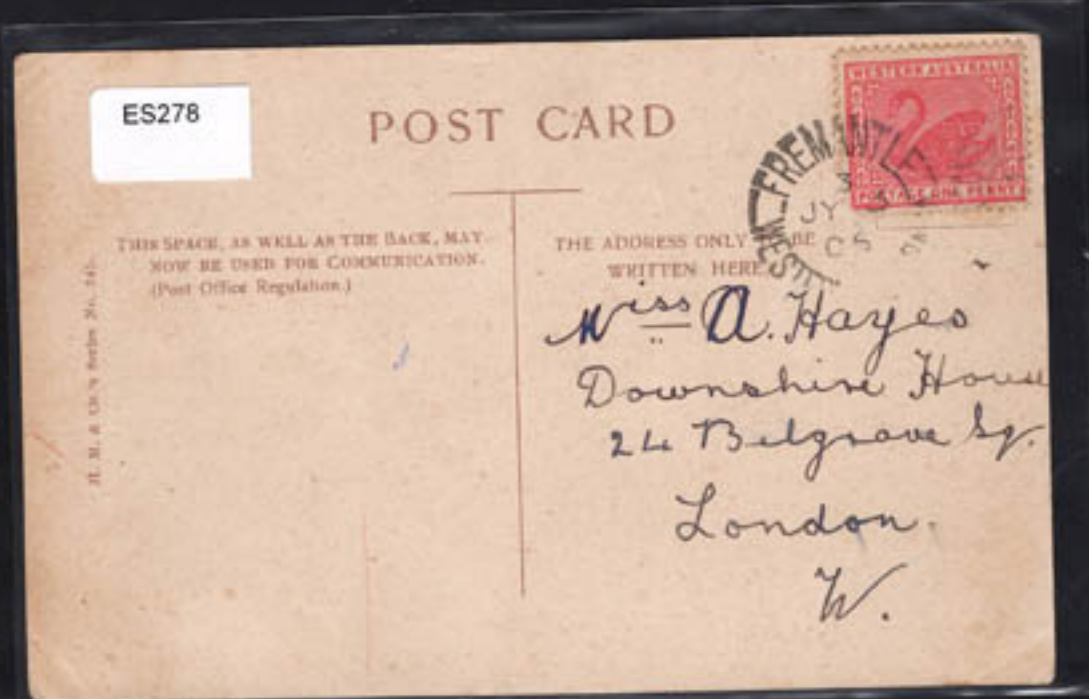 ES278
POST CARD
WESTERN AUSTRALIA
POSTAGE ONE PENNY
FREMANTLE
3
JY
05
THIS SPACE, AS WELL AS THE BACK, MAY
NOW BE USED FOR COMMUNICATION.
(Post Office Regulation.)
THE ADDRESS ONLY BE
WRITTEN HERE
Miss A. Hayes
Downshire House
24 Belgrave Sq.
London.
W.
Series No.